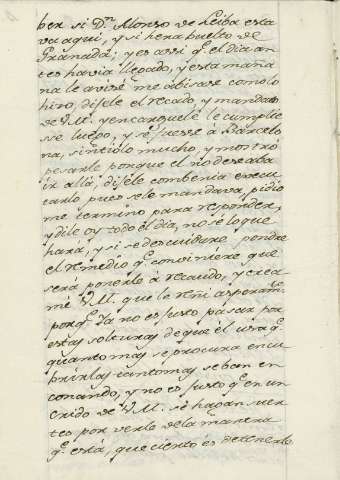 ber si D.n Alonso de Leiba esta
va aqui, y si hera buelto de
Granada; y es assi q.e el dia an
tes havia llegado, y esta maña
na le avisé me abisase como lo
hizo, dijele el recado, y mandato
de V.M. y encarguele le cumplie
sse luego, y se fuesse á Barcelo
na, sintiolo mucho, y mostró
pesarle porque el no deseaba
ir allá, dijele combenia execu
tarlo, pues se le mandava, pidio
me termino para responder,
y dile oy todo el dia, no sé lo que
hará, y si se descuidare pondre
el remedio q.e conviniere que
será ponerle á recaudo, y crea
me V.M. que le reñi asperam.te
porq.e Ya no es justo pasar por
estas solturas de que él usa q.e
quanto mas se procura encu
brirlas tanto mas se ban en
conando, y no es justo q.e en un
crido de V.M. se hagan suer
tes por verle de la manera
q.e está, que cierto es detenerle